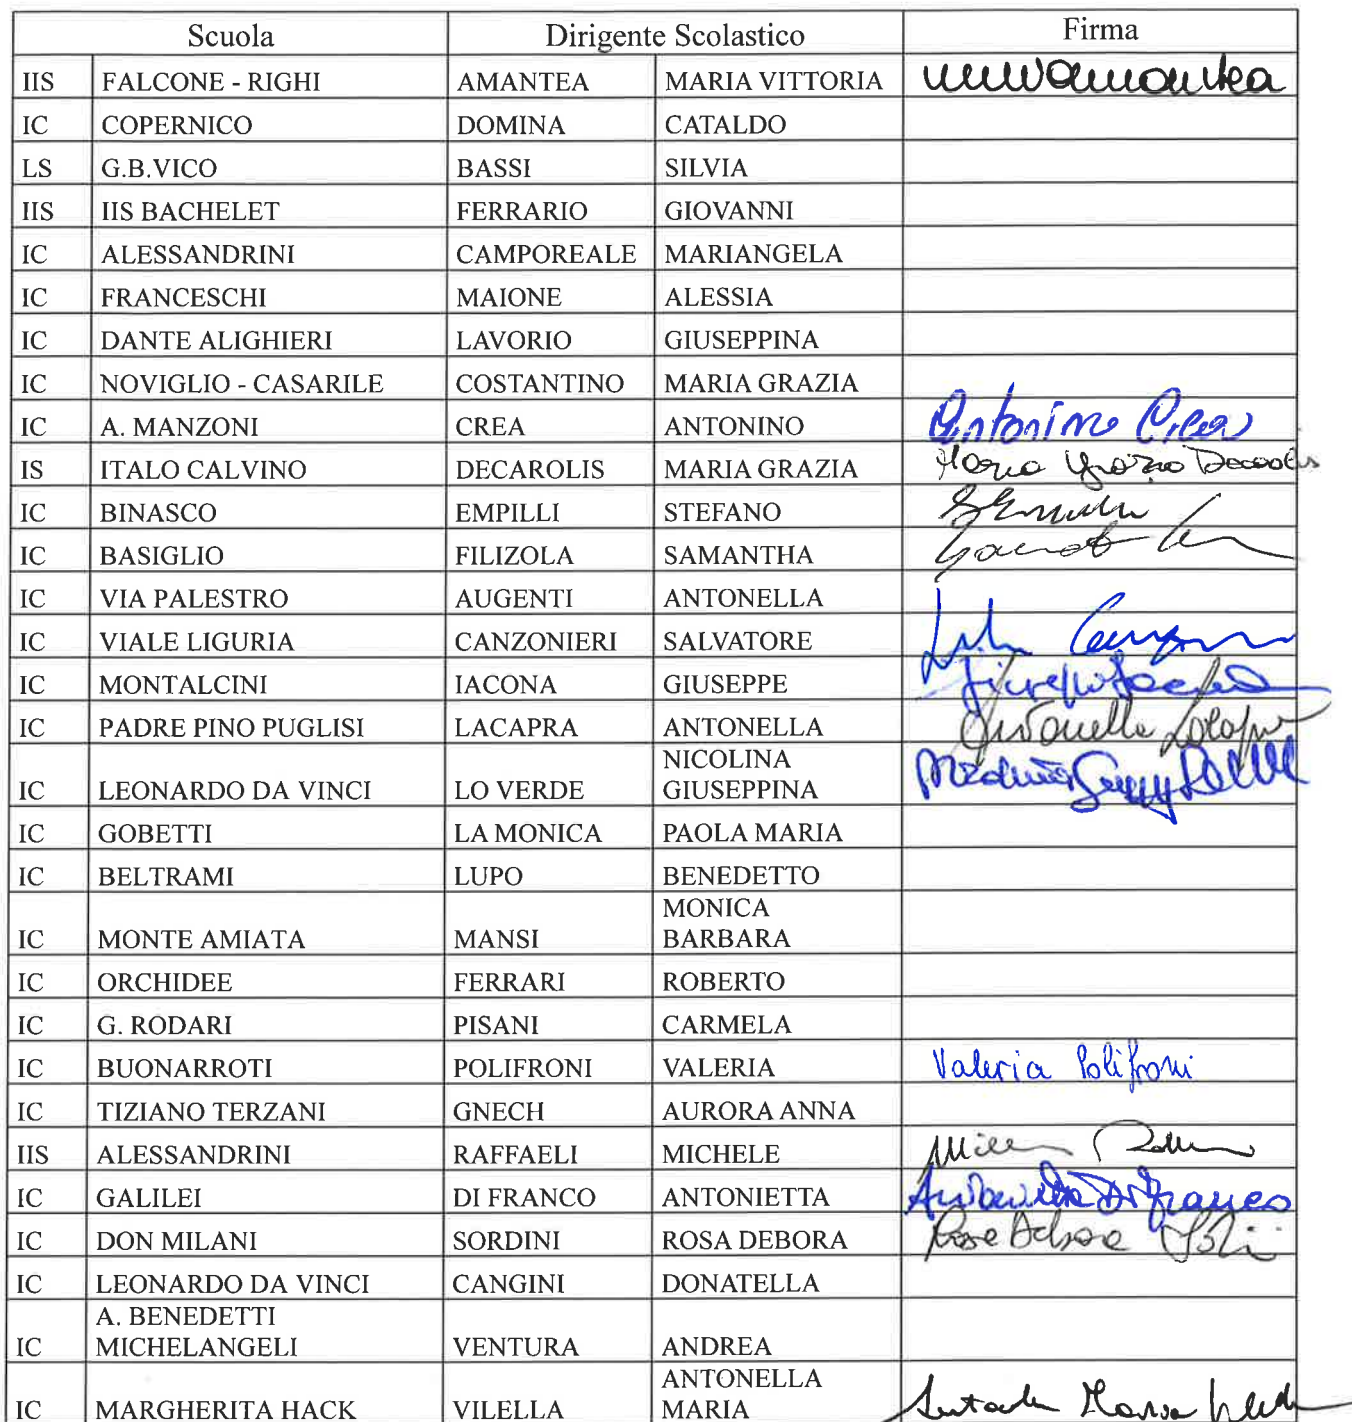 Scuola Dirigente Scolastico Firma
IIS FALCONE - RIGHI AMANTEA MARIA VITTORIA
IC COPERNICO DOMINA CATALDO
LS G.B.VICO BASSI SILVIA
IIS IIS BACHELET FERRARIO GIOVANNI
IC ALESSANDRINI CAMPOREALE MARIANGELA
IC FRANCESCHI MAIONE ALESSIA
IC DANTE ALIGHIERI LAVORIO GIUSEPPINA
IC NOVIGLIO - CASARILE COSTANTINO MARIA GRAZIA
IC A. MANZONI CREA ANTONINO Antonino Crea
IS ITALO CALVINO DECAROLIS MARIA GRAZIA Maria Grazia Decarolis
IC BINASCO EMPILLI STEFANO
IC BASIGLIO FILIZOLA SAMANTHA
IC VIA PALESTRO AUGENTI ANTONELLA
IC VIALE LIGURIA CANZONIERI SALVATORE
IC MONTALCINI IACONA GIUSEPPE
IC PADRE PINO PUGLISI LACAPRA ANTONELLA Antonella Lacapra
NICOLINA
IC LEONARDO DA VINCI LO VERDE GIUSEPPINA
IC GOBETTI LA MONICA PAOLA MARIA
IC BELTRAMI LUPO BENEDETTO
MONICA
IC MONTE AMIATA MANSI BARBARA
IC ORCHIDEE FERRARI ROBERTO
IC G. RODARI PISANI CARMELA
IC BUONARROTI POLIFRONI VALERIA Valeria Polifroni
IC TIZIANO TERZANI GNECH AURORA ANNA
IIS ALESSANDRINI RAFFAELI MICHELE
IC GALILEI DI FRANCO ANTONIETTA Antonietta Di Franco
IC DON MILANI SORDINI ROSA DEBORA Rosa Debora
IC LEONARDO DA VINCI CANGINI DONATELLA
A. BENEDETTI
IC MICHELANGELI VENTURA ANDREA
ANTONELLA
IC MARGHERITA HACK VILELLA MARIA